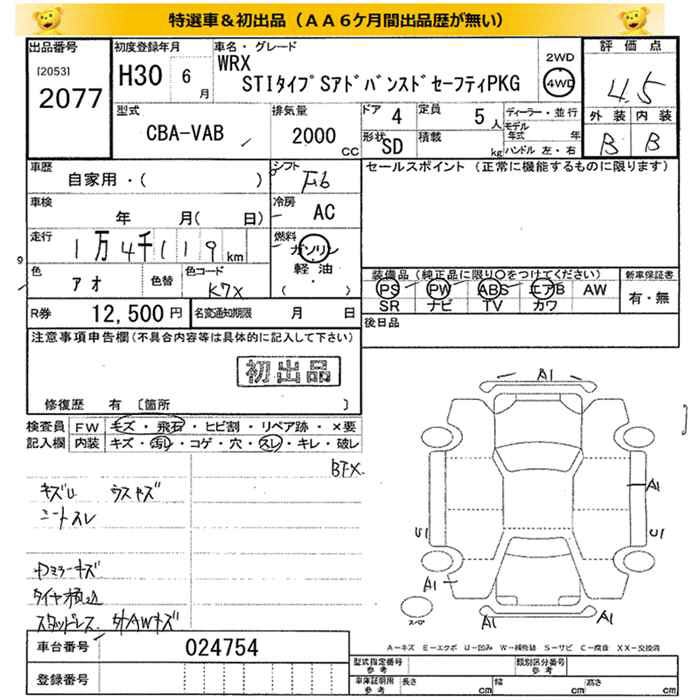 特選車&初出品（ＡＡ６ケ月間出品歴が無い）
出品番号
[2053]
2077
初度登録年月
H30 6 月
車名・グレード
WRX
STIタイプSアドバンスドセーフティPKG
2WD
4WD
評価点
4.5
外装 内装
B B
型式
CBA-VAB
排気量
2000 CC
ドア 4
定員 5 人
形状 SD
積載 kg
ディーラー・並行
モデル年式 年
ハンドル 左・右
車歴
自家用・( )
シフト
F6
セールスポイント (正常に機能するものに限ります)
車検
年 月( 日)
冷房
AC
走行
1万4千119km
燃料
ガソリン
軽油
( ・ )
色
アオ
色替
色コード
K7X
装備品(純正品に限り○をつけてください)
PS PW ABS エアB AW
SR ナビ TV カワ
新車保証書
有・無
R券 12,500円
名変通知期限 月 日
後日品
注意事項申告欄(不具合内容等は具体的に記入して下さい)
初出品
修復歴 有 〔箇所 〕
検査員記入欄
FW キズ・飛石・ヒビ割・リペア跡・×要
内装 キズ・汚レ・コゲ・穴・スレ・キレ・破レ
キズU ウスキズ
ニートスレ
ワミラーキズ
スタッドレス 外AWキズ
A1
A1
U1
U1
A1
A1
スペア
車台番号 024754
登録番号
A－キズ E－エクボ U－凹み W－補修跡 S－サビ C－腐食 XX－交換済
型式指定番号 参考
類別区分番号 参考
車庫証明用 参考 長さ cm 幅 cm 高さ cm